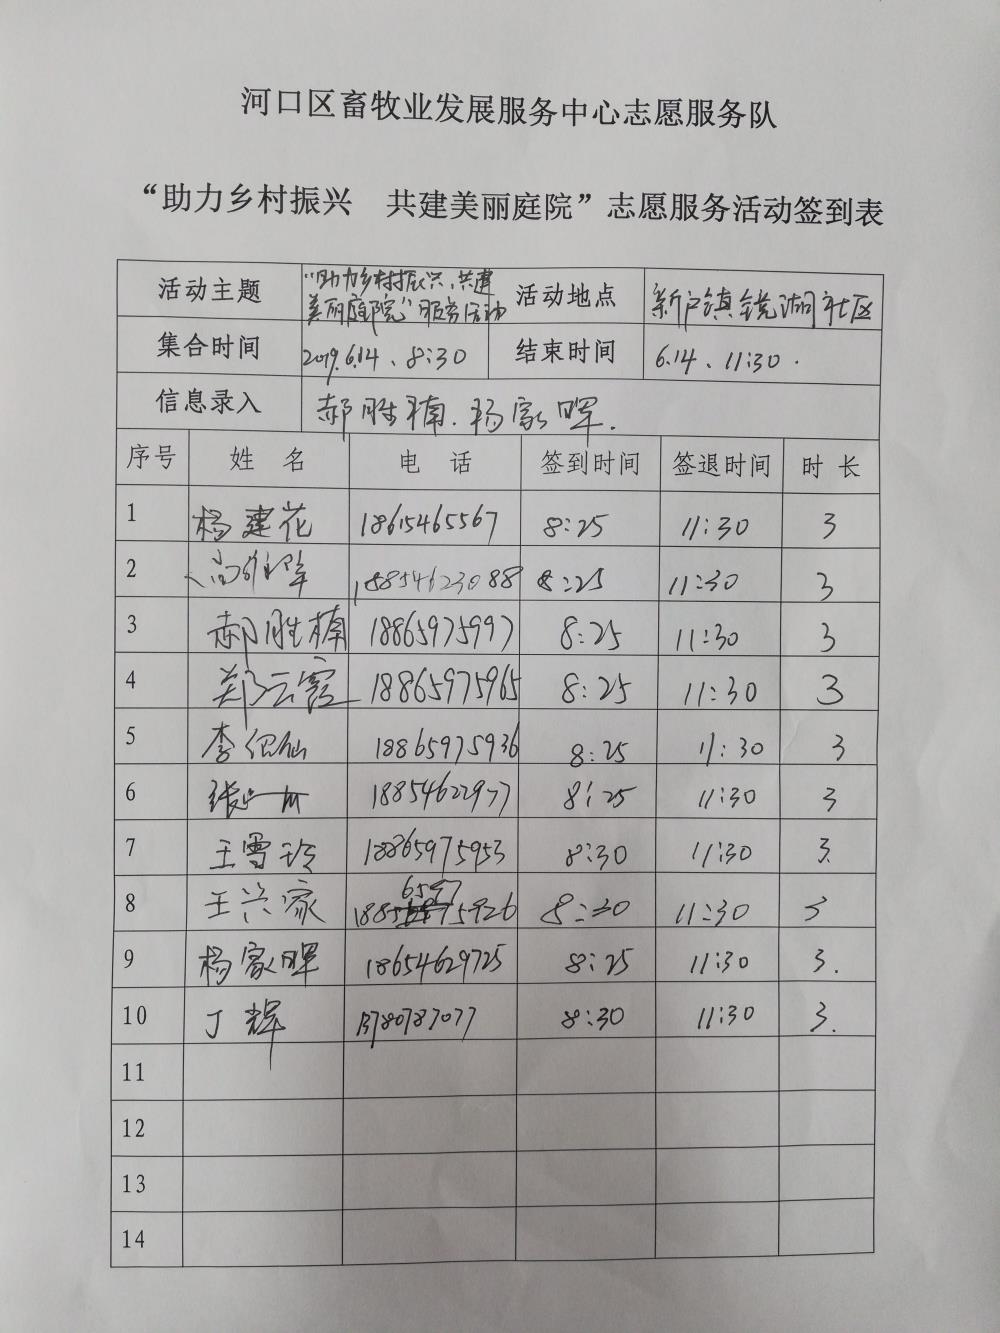 河口区畜牧业发展服务中心志愿服务队
“助力乡村振兴 共建美丽庭院”志愿服务活动签到表
活动主题 “助力乡村振兴、共建美丽庭院”服务活动 活动地点 新户镇镜湖社区
集合时间 2019.6.14、8:30 结束时间 6.14、11:30.
信息录入 郝胜楠.杨家晖.
序号 姓 名 电 话 签到时间 签退时间 时 长
1 杨建花 18615465567 8:25 11:30 3
2 18854623088 8:25 11:30 3
3 郝胜楠 18865975997 8:25 11:30 3
4 郑云霞 18865975965 8:25 11:30 3
5 李 18865975936 8:25 11:30 3
6 张 18854622977 8:25 11:30 3
7 王雪玲 18865975953 8:30 11:30 3.
8 王兴家 18865975926 8:30 11:30 3
9 杨家晖 18654629725 8:25 11:30 3.
10 丁辉 13780787077 8:30 11:30 3.
11
12
13
14